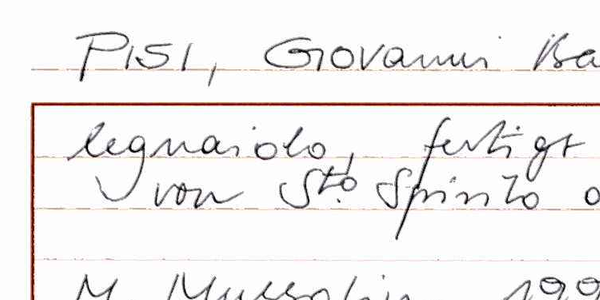 PISI, Giovanni Ba
legnaiolo, fertigt
von Sto. Spirito
M. Mussolin, 199